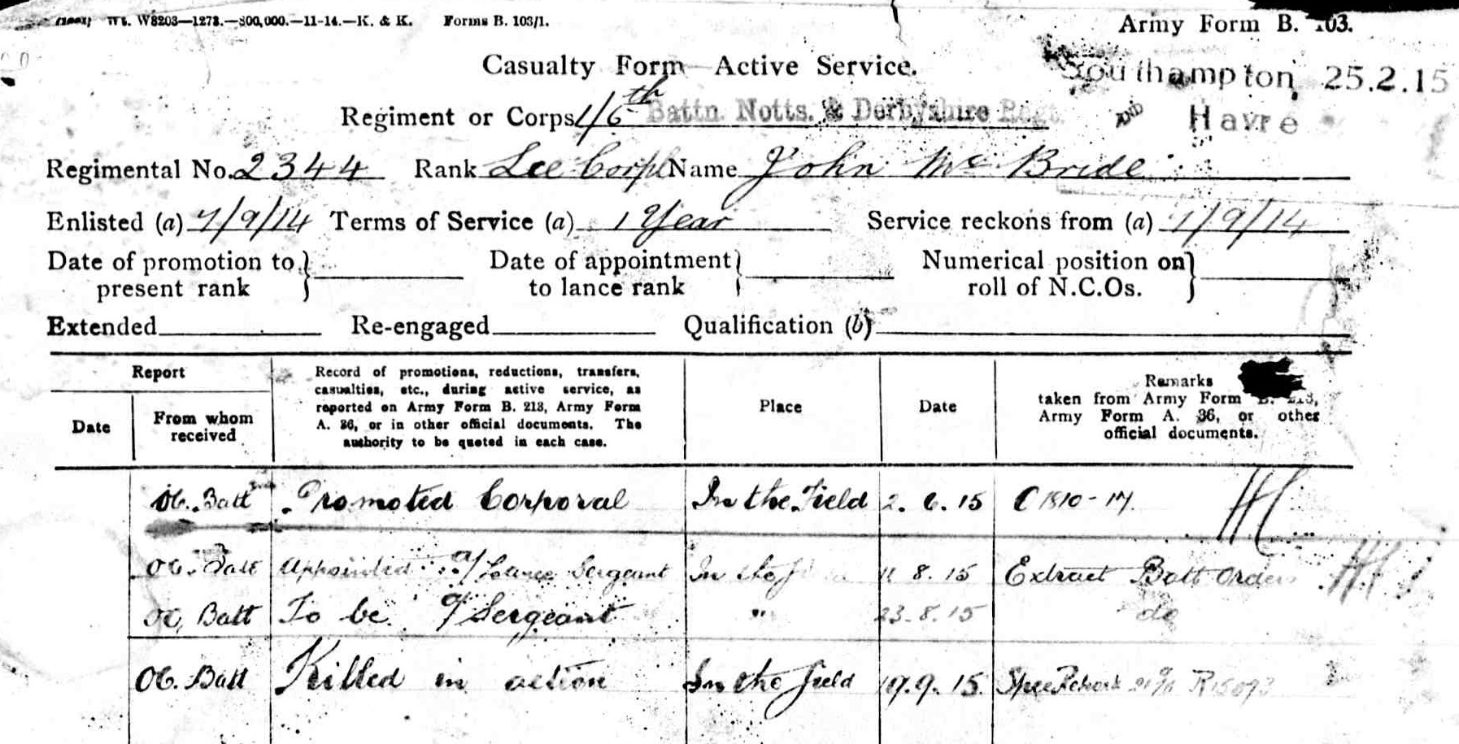 Wt. W8203—1273.—300,000.—11-14.—K. & K. Forms B. 103/1.
Army Form B. 103.
Casualty Form—Active Service.
Southampton, 25.2.15
AND
Havre
Regiment or Corps 1/6th Battn Notts. & Derbyshire Regt.
Regimental No. 2344 Rank Lce Corpl Name John Mc Bride
Enlisted (a) 7/9/14 Terms of Service (a) 1 Year Service reckons from (a) 7/9/14
Date of promotion to } Date of appointment } Numerical position on }
present rank to lance rank roll of N.C.Os.
Extended Re-engaged Qualification (b)
Report
Date
From whom
received
Record of promotions, reductions, transfers,
casualties, etc., during active service, as
reported on Army Form B. 213, Army Form
A. 36, or in other official documents. The
authority to be quoted in each case.
Place
Date
Remarks
taken from Army Form B. 213,
Army Form A. 36, or other
official documents.
OC. Batt Promoted Corporal In the Field 2.6.15 C 1810-17.
OC. Batt Appointed a/Lance Sergeant In the 11 8.15 Extract Batt Orders
OC, Batt To be a/Sergeant " 23.8.15 do
OC. Batt Killed in action In the field 19.9.15. R15093